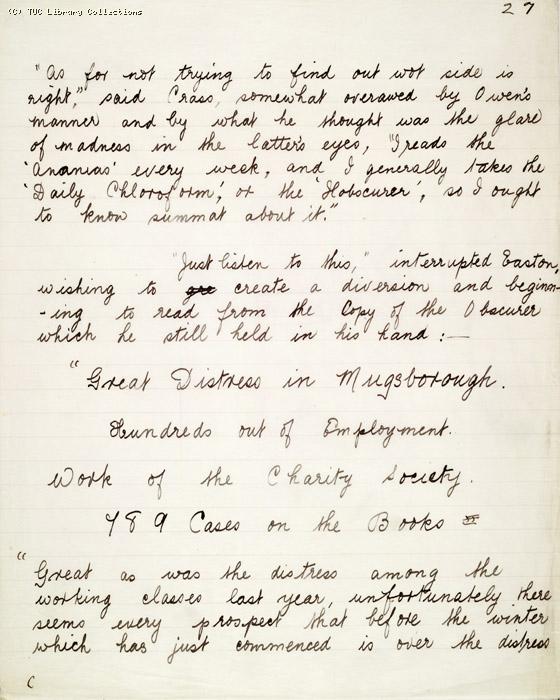 (C) TUC Library Collections
27
"As for not trying to find out wot side is
right," said Crass, somewhat overawed by Owen's
manner and by what he thought was the glare
of madness in the latter's eyes, "I reads the
'Ananias' every week, and I generally takes the
'Daily Chloroform', or the 'Hobscurer', so I ought
to know summat about it."
"Just listen to this," interrupted Easton,
wishing to create a diversion and beginn-
-ing to read from the Copy of the Obscurer
which he still held in his hand :—
"Great Distress in Mugsborough.
Hundreds out of Employment.
Work of the Charity Society.
789 Cases on the Books
"Great as was the distress among the
working classes last year, unfortunately there
seems every prospect that before the winter
which has just commenced is over the distress
C